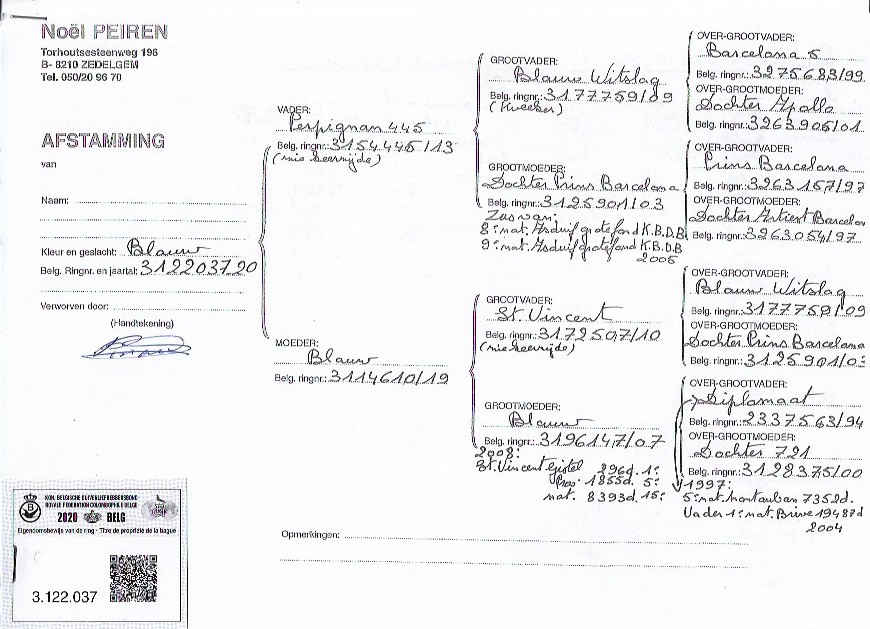 Noël PEIREN
Torhoutsesteenweg 196
B- 8210 ZEDELGEM
Tel. 050/20 96 70
AFSTAMMING
van
Naam:
Kleur en geslacht: Blauw
Belg. Ringnr. en jaartal: 3122037.20
Verworven door:
(Handtekening)
KON. BELGISCHE DUIVENLIEFHEBBERSBOND
ROYALE FEDERATION COLOMBOPHILE BELGE
2020 BELG
Eigendomsbewijs van de ring - Titre de propriété de la bague
3.122.037
VADER:
Perpignan 445
Belg. ringnr.: 3154445/13
MOEDER:
Blauw
Belg. ringnr.: 3114610/19
GROOTVADER:
Blauw Witslag
Belg. ringnr.: 3177759/09
(Kweker)
GROOTMOEDER:
Dochter Prins Barcelona
Belg. ringnr.: 3125901/03
8e nat. Asduif grote fond K.B.D.B
9e nat. Asduif grote fond K.B.D.B
2005
GROOTVADER:
St. Vincent
Belg. ringnr.: 3172507/10
GROOTMOEDER:
Blauw
Belg. ringnr.: 3196147/07
2008:
St. Vincent Gistel 296d. 1e
Prov 1855d. 5e
nat. 8393d. 15e
OVER-GROOTVADER:
Barcelona 5
Belg. ringnr.: 3275683/99
OVER-GROOTMOEDER:
Dochter Apollo
Belg. ringnr.: 3263905/01
OVER-GROOTVADER:
Prins Barcelona
Belg. ringnr.: 3263157/97
OVER-GROOTMOEDER:
Dochter Artiest Barcelon
Belg. ringnr.: 3263054/97
OVER-GROOTVADER:
Blauw Witslag
Belg. ringnr.: 3177759/09
OVER-GROOTMOEDER:
Dochter Prins Barcelona
Belg. ringnr.: 3125901/03
OVER-GROOTVADER:
Diplomaat
Belg. ringnr.: 2337563/94
OVER-GROOTMOEDER:
Dochter 721
Belg. ringnr.: 3128375/00
1997:
5e nat. Montauban 7352d.
Vader 1e nat. Brive 19487d
2004
Opmerkingen: